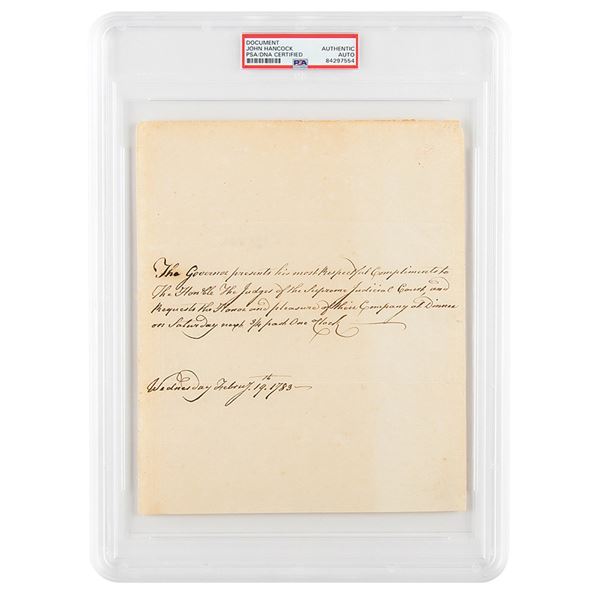 DOCUMENT
JOHN HANCOCK AUTHENTIC
PSA/DNA CERTIFIED AUTO
PSA 84297554
The Governor presents his most Respectful Compliments to
The Honble The Judges of the Supreme Judicial Court, and
Requests the Honor and pleasure of their Company at Dinner
on Saturday next 3/4 past One o'Clock
Wednesday Feb'ruy. 19th. 1783